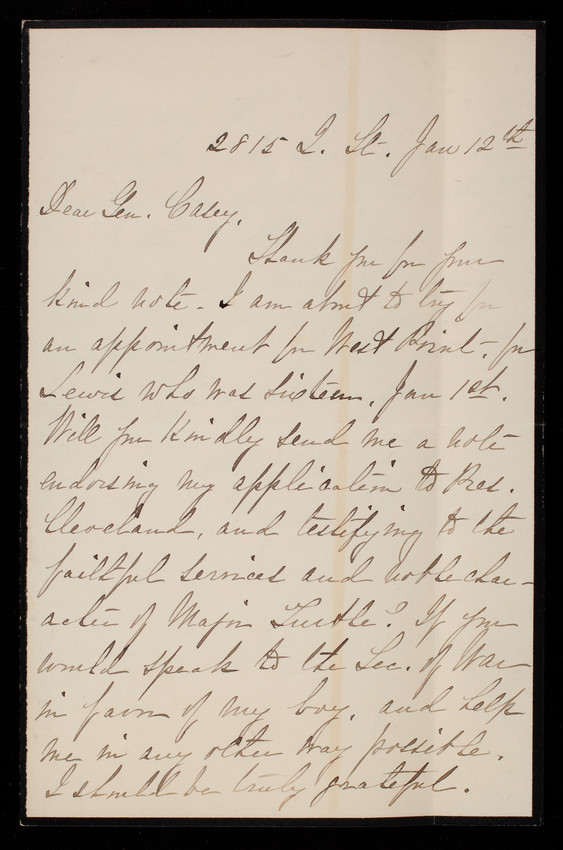 2815 Q. St. Jan 12th
Dear Gen. Casey,
Thank you for your
kind note - I am about to try for
an appointment for West Point - for
Lewis who was sixteen, Jan 1st.
Will you kindly send me a note
endorsing my application to Pres.
Cleveland, and testifying to the
faithful services and noble char-
acter of Major Turtle? If you
would speak to the Sec. of War
in favor of my boy, and help
me in any other way possible,
I should be truly grateful.